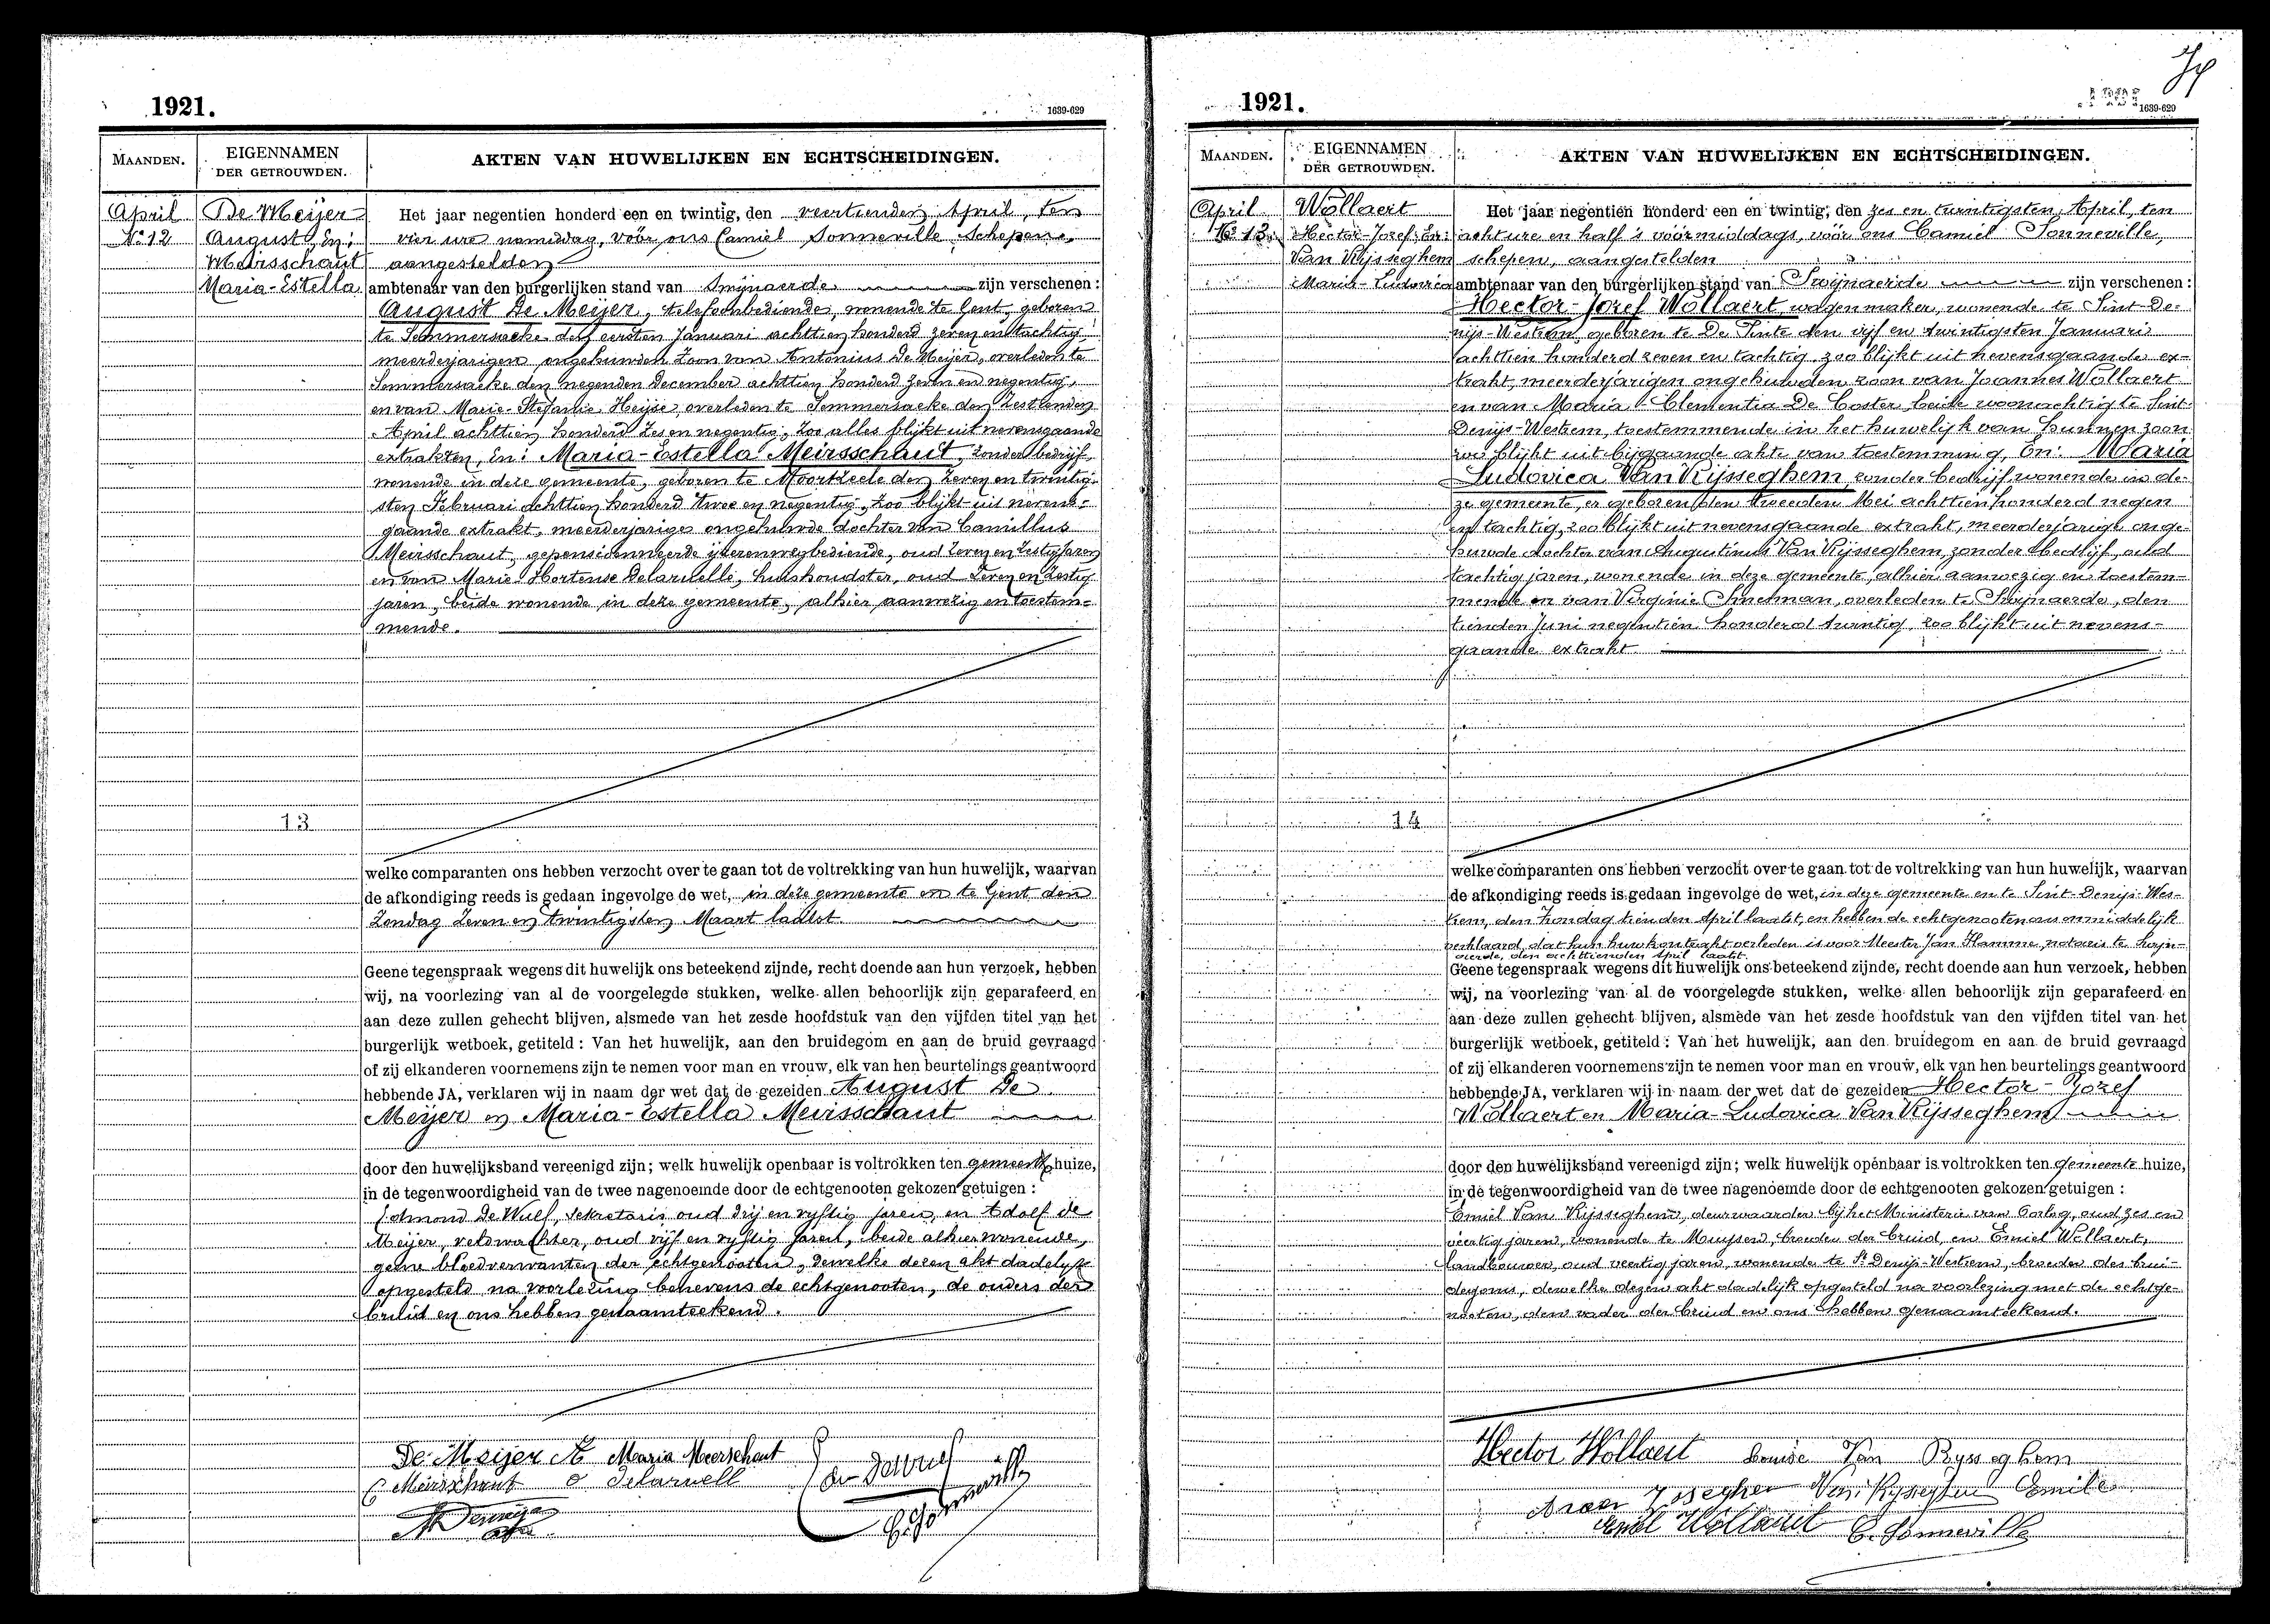 1921.
1639-629
MAANDEN.
EIGENNAMEN
DER GETROUWDEN.
AKTEN VAN HUWELIJKEN EN ECHTSCHEIDINGEN.
April
No 12
De Meijer
August, En:
Meirsschaut
Maria-Estella
Het jaar negentien honderd een en twintig, den veertienden April, ten
vier ure namiddag, vóór ons Camiel Sonneville Schepene,
aangestelden
ambtenaar van den burgerlijken stand van Swijnaerde zijn verschenen:
August De Meijer, telefoonbediende, wonende te Gent, geboren
te Semmersaeke den eersten Januari achttien honderd zeven en tachtig
meerderjarigen ongehuwden zoon van Antonius De Meijer, overleden te
Semmersaeke den negenden December achttien honderd zeven en negentig,
en van Marie-Stefanie Heijse, overleden te Semmersaeke den zestienden
April achttien honderd zes en negentig, zoo alles blijkt uit nevensgaande
extrakten, En: Maria-Estella Meirsschaut, zonder bedrijf,
wonende in deze gemeente, geboren te Moortzeele den zeven en twintig-
sten Februari achttien honderd twee en negentig, zoo blijkt uit nevens-
gaande extrakt, meerderjarige ongehuwde dochter van Camillus
Meirsschaut, gepensioenneerde ijzerenwegbediende, oud zeven en zestig jaren
en van Marie-Hortense Delaruelle, huishoudster, oud zeven en zestig
jaren, beide wonende in deze gemeente, alhier aanwezig en toestem-
mende.
13
welke comparanten ons hebben verzocht over te gaan tot de voltrekking van hun huwelijk, waarvan
de afkondiging reeds is gedaan ingevolge de wet, in deze gemeente en te Gent den
Zondag zeven en twintigsten Maart laatst
Geene tegenspraak wegens dit huwelijk ons beteekend zijnde, recht doende aan hun verzoek, hebben
wij, na voorlezing van al de voorgelegde stukken, welke allen behoorlijk zijn geparafeerd en
aan deze zullen gehecht blijven, alsmede van het zesde hoofdstuk van den vijfden titel van het
burgerlijk wetboek, getiteld: Van het huwelijk, aan den bruidegom en aan de bruid gevraagd
of zij elkanderen voornemens zijn te nemen voor man en vrouw, elk van hen beurtelings geantwoord
hebbende JA, verklaren wij in naam der wet dat de gezeiden August De
Meijer en Maria-Estella Meirsschaut
door den huwelijksband vereenigd zijn; welk huwelijk openbaar is voltrokken ten gemeente huize,
in de tegenwoordigheid van de twee nagenoemde door de echtgenooten gekozen getuigen:
Edmond De Wulf, sekretaris oud drij en vijftig jaren, en Adolf de
Meijer, veldwachter, oud vijf en vijftig jaren, beide alhier wonende,
geene bloedverwanten der echtgenooten, dewelke dezen akt dadelijk
opgesteld na voorlezing benevens de echtgenooten, de ouders der
bruid en ons hebben genaamteekend.
De Meijer A Maria Meerschaut
C Meirschaut Delaruell
C. Sonneville
1921.
1639-629
MAANDEN.
EIGENNAMEN
DER GETROUWDEN.
AKTEN VAN HUWELIJKEN EN ECHTSCHEIDINGEN.
April
No 13
Wollaert
Hector-Jozef, En:
Van Rijsseghem
Maria-Ludovica
Het jaar negentien honderd een en twintig, den zes en twintigsten April, ten
acht ure en half 's voormiddags, vóór ons Camiel Sonneville,
schepen, aangestelden
ambtenaar van den burgerlijken stand van Swijnaerde zijn verschenen:
Hector-Jozef Wollaert, wagenmaker, wonende te Sint-De-
nijs-Westrem, geboren te De Pinte den vijf en twintigsten Januari
achttien honderd zeven en tachtig, zoo blijkt uit nevensgaande ex-
trakt, meerderjarigen ongehuwden zoon van Joannes Wollaert
en van Maria-Clementia De Coster, beide woonachtig te Sint-
Denijs-Westrem, toestemmende in het huwelijk van hunnen zoon
zoo blijkt uit bijgaande akte van toestemming, En: Maria
Ludovica Van Rijsseghem, zonder bedrijf, wonende in de-
ze gemeente, er geboren den tweeden Mei achttien honderd negen
en tachtig, zoo blijkt uit nevensgaande extrakt, meerderjarige onge-
huwde dochter van Augustinus Van Rijsseghem, zonder bedrijf, oud
tachtig jaren, wonende in deze gemeente, alhier aanwezig en toestem-
mende en van Virginie Sneman, overleden te Swijnaerde, den
tienden Juni negentien honderd twintig, zoo blijkt uit nevens-
gaande extrakt
14
welke comparanten ons hebben verzocht over te gaan tot de voltrekking van hun huwelijk, waarvan
de afkondiging reeds is gedaan ingevolge de wet, in deze gemeente en te Sint-Denijs-Wes-
trem, den Zondag tienden April laatst, en hebben de echtgenooten ons onmiddelijk
verklaard, dat hun huwkontrakt verleden is voor Meester Jan Hamme, notaris te Swijn-
aerde, den achttienden April laatst.
Geene tegenspraak wegens dit huwelijk ons beteekend zijnde, recht doende aan hun verzoek, hebben
wij, na voorlezing van al de voorgelegde stukken, welke allen behoorlijk zijn geparafeerd en
aan deze zullen gehecht blijven, alsmede van het zesde hoofdstuk van den vijfden titel van het
burgerlijk wetboek, getiteld: Van het huwelijk, aan den bruidegom en aan de bruid gevraagd
of zij elkanderen voornemens zijn te nemen voor man en vrouw, elk van hen beurtelings geantwoord
hebbende JA, verklaren wij in naam der wet dat de gezeiden Hector-Jozef
Wollaert en Maria-Ludovica Van Rijsseghem
door den huwelijksband vereenigd zijn; welk huwelijk openbaar is voltrokken ten gemeente huize,
in de tegenwoordigheid van de twee nagenoemde door de echtgenooten gekozen getuigen:
Emiel Van Rijsseghem, deurwaarder bij het Ministerie van Oorlog, oud zes en
veertig jaren, wonende te Muysen, broeder der bruid, en Emiel Wollaert,
landbouwer, oud veertig jaren, wonende te St Denijs-Westrem, broeder des brui-
degoms, dewelke dezen akt dadelijk opgesteld na voorlezing met de echtge-
nooten, den vader der bruid en ons hebben genaamteekend.
Hector Wollaert Louise Van Rysseghem
Van Rysseghem Emile
Emiel Wollaert C. Sonneville